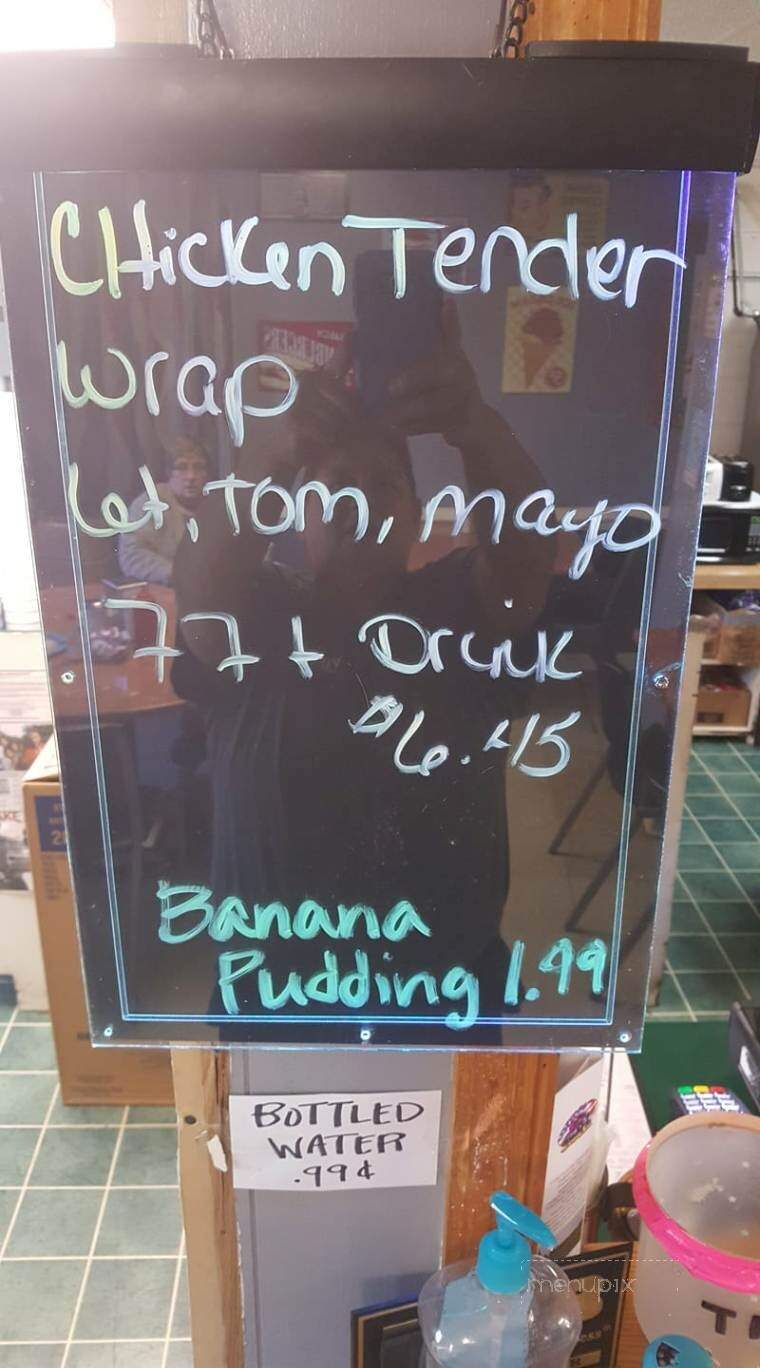 Chicken Tender
Wrap
Let, Tom, mayo
77 + Drink
$6.45
Banana
Pudding 1.99
BOTTLED
WATER
.99¢
menupix